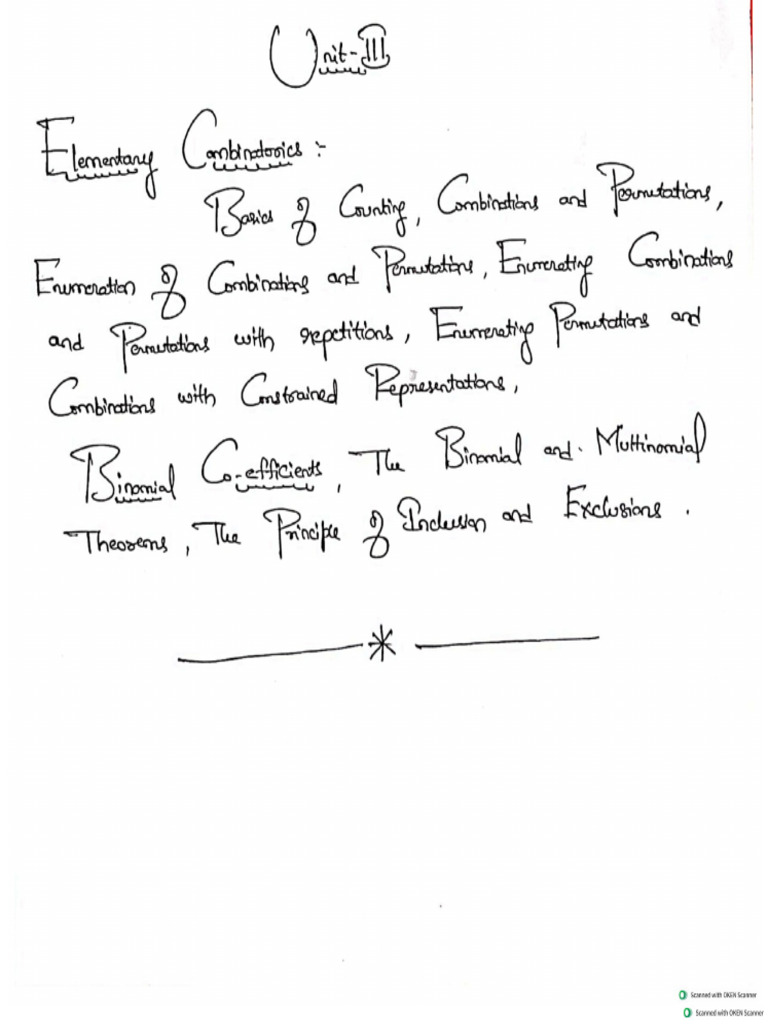 Unit-III
Elementary Combinatorics :-
Basics of Counting, Combinations and Permutations,
Enumeration of Combinations and Permutations, Enumerating Combinations
and Permutations with repetitions, Enumerating Permutations and
Combinations with Constrained Representations,
Binomial Co-efficients, The Binomial and Multinomial
Theorems, The Principle of Inclusion and Exclusions.
Scanned with OKEN Scanner
Scanned with OKEN Scanner